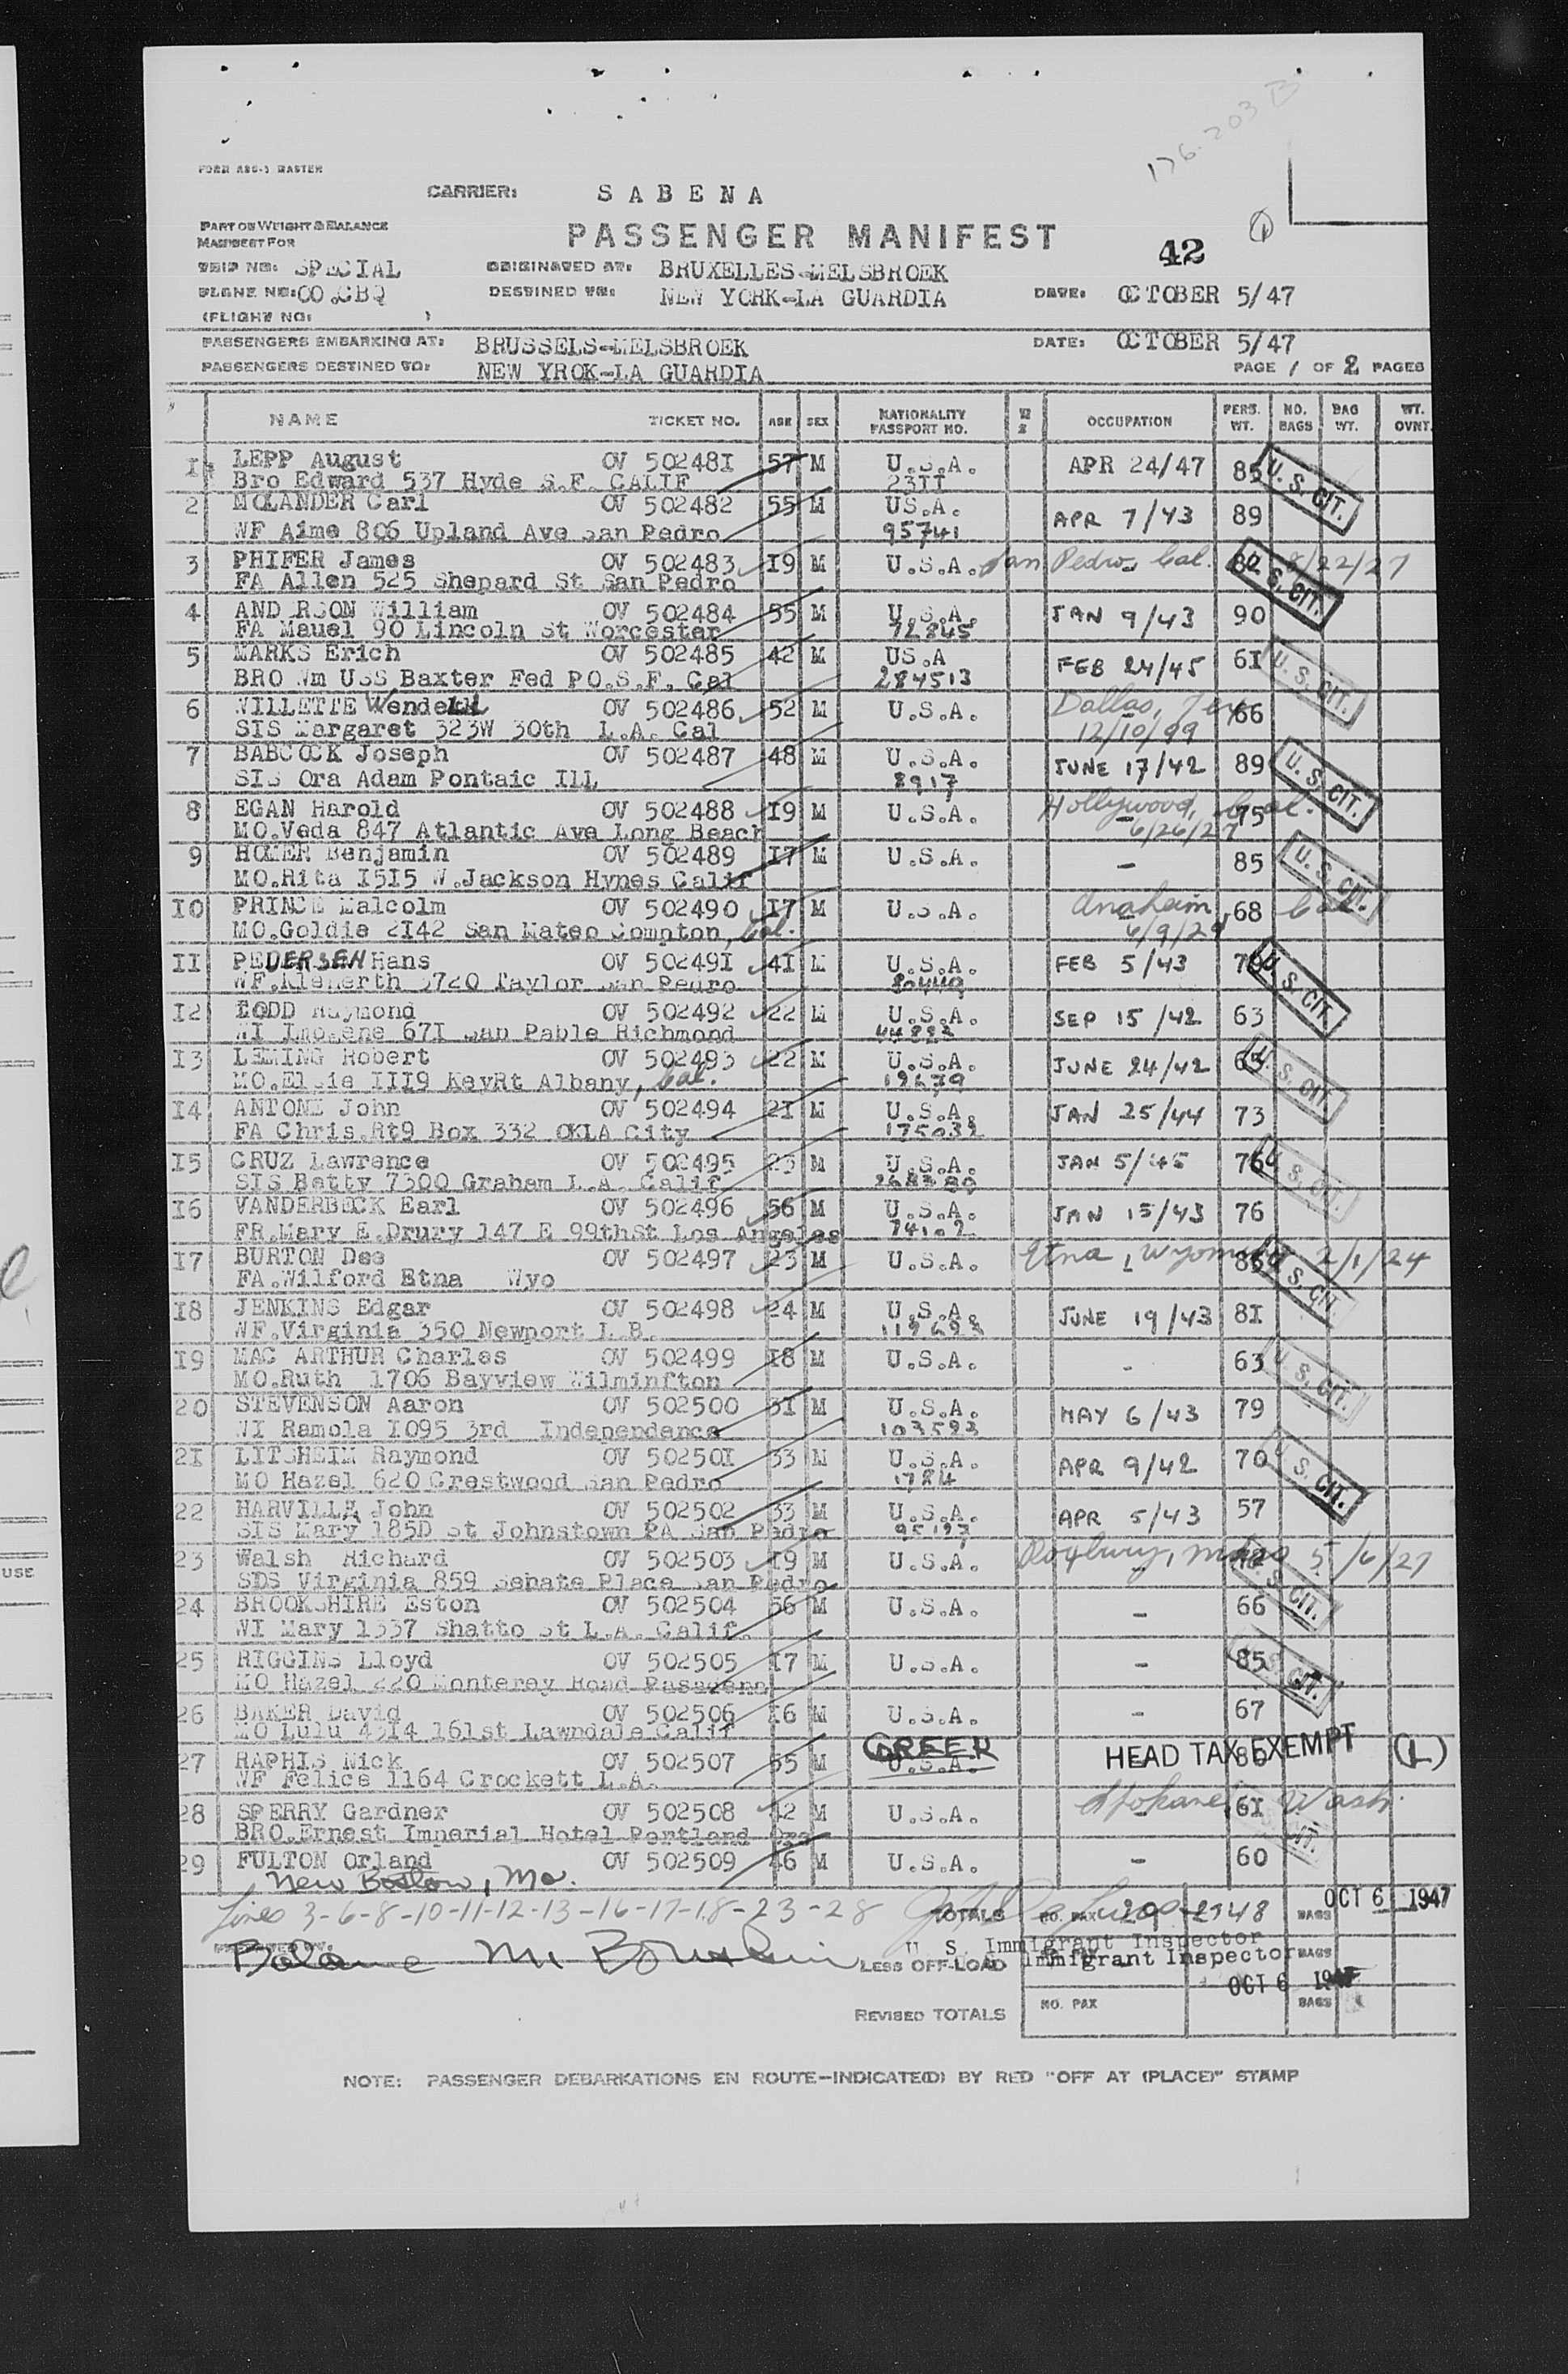 176-203 B
FORM ABC-1 MASTER
CARRIER: S A B E N A
PART OF WEIGHT & BALANCE
MANIFEST FOR
PASSENGER MANIFEST
42
TRIP NO: SPECIAL ORIGINATED AT: BRUXELLES-MELSBROEK
PLANE NO: OO.CBQ DESTINED TO: NEW YORK-LA GUARDIA DATE: OCTOBER 5/47
(FLIGHT NO: )
PASSENGERS EMBARKING AT: BRUSSELS-MELSBROEK DATE: OCTOBER 5/47
PASSENGERS DESTINED TO: NEW YROK-LA GUARDIA PAGE 1 OF 2 PAGES
NAME TICKET NO. AGE SEX NATIONALITY PASSPORT NO. OCCUPATION PERS. WT. NO. BAGS BAG WT. WT. OVNT.
I LEPP August OV 50248I 57 M U.S.A. APR 24/47 85 U. S. CIT.
Bro Edward 537 Hyde S.F. CALIF 23II
2 MOLANDER Carl OV 502482 55 M US.A. APR 7/43 89
WF Aime 806 Upland Ave San Pedro 95741
3 PHIFER James OV 502483 I9 M U.S.A. San Pedro Cal. 82 8/22/27 U. S. CIT.
FA Allen 525 Shepard St San Pedro
4 ANDERSON William OV 502484 55 M U.S.A. JAN 9/43 90
FA Mauel 90 Lincoln St Worcester 72845
5 MARKS Erich OV 502485 42 M US.A FEB 24/45 6I U. S. CIT.
BRO Wm USS Baxter Fed PO.S.F. Cal 284513
6 WILLETTE Wendell OV 502486 52 M U.S.A. Dallas, Tex 66
SIS Margaret 323W 30th L.A. Cal 12/10/99
7 BABCOCK Joseph OV 502487 48 M U.S.A. JUNE 17/42 89 U. S. CIT.
SIS Ora Adam Pontaic Ill 8917
8 EGAN Harold OV 502488 I9 M U.S.A. Hollywood, Cal. 75
MO.Veda 847 Atlantic Ave Long Beach 6/26/27
9 HOMER Benjamin OV 502489 I7 M U.S.A. - 85 U. S. CIT.
MO.Rita I5I5 W.Jackson Hynes Calif
IO PRINCE Malcolm OV 502490 I7 M U.S.A. Anaheim, 68 Cal.
MO.Goldie 2I42 San Mateo Compton, Cal. 6/9/29
II PEDERSEN Hans OV 50249I 4I M U.S.A. FEB 5/43 U. S. CIT.
WF. 3720 Taylor San Pedro 80449
I2 Raymond OV 502492 22 M U.S.A. SEP 15/42 63
WI Imogene 67I San Pable Richmond 44823
I3 LEMING Robert OV 502493 22 M U.S.A. JUNE 24/42 U. S. CIT.
MO.Elsie III9 KeyRt Albany, Cal. 19679
I4 ANTONE John OV 502494 2I M U.S.A. JAN 25/44 73
FA Chris.Rt9 Box 332 OKLA City 175032
I5 CRUZ Lawrence OV 502495 23 M U.S.A. JAN 5/45 76 U. S. CIT.
SIS Betty 7300 Graham L.A. Calif.
I6 VANDERBECK Earl OV 502496 56 M U.S.A. JAN 15/43 76
FR.Mary E.Drury 147 E 99thSt Los Angeles
I7 BURTON Dee OV 502497 23 M U.S.A. Etna, Wyoming 2/1/24 U. S. CIT.
FA.Wilford Etna Wyo
I8 JENKINS Edgar OV 502498 24 M U.S.A. JUNE 19/43 8I
WF.Virginia 350 Newport L.B. 119693
I9 MAC ARTHUR Charles OV 502499 I8 M U.S.A. - 63 U. S. CIT.
MO.Ruth 1706 Bayview Wilminfton
20 STEVENSON Aaron OV 502500 3I M U.S.A. MAY 6/43 79
WI Ramola I095 3rd Independance 103593
2I LITSHEIM Raymond OV 50250I 33 M U.S.A. APR 9/42 70 U. S. CIT.
MO Hazel 620 Crestwood San Pedro 1784
22 HARVILLE John OV 502502 33 M U.S.A. APR 5/43 57
SIS Mary 185D St Johnstown PA San Pedro 95197
23 Walsh Richard OV 502503 I9 M U.S.A. Roxbury, Mass 5/6/27 U. S. CIT.
SDS Virginia 859 Senate Place San Pedro
24 BROOKSHIRE Eston OV 502504 56 M U.S.A. - 66
WI Mary 1337 Shatto St L.A. Calif.
25 RIGGINS Lloyd OV 502505 I7 M U.S.A. - 85 U. S. CIT.
MO Hazel 220 Monterey Road Passdena
26 BAKER David OV 502506 I6 M U.S.A. - 67
MO Lulu 43I4 161st Lawndale Calif
27 RAPHIS Nick OV 502507 55 M GREEK U.S.A. HEAD TAX EXEMPT (L)
WF Felice 1164 Crockett L.A.
28 SPERRY Gardner OV 502508 42 M U.S.A. Spokane, 6I Wash.
BRO.Ernest Imperial Hotel Portland Ore
29 FULTON Orland OV 502509 46 M U.S.A. - 60
New Boston, Mo.
Lines 3-6-8-10-11-12-13-16-17-18-23-28 TOTALS NO. PAX 29 2148 BAGS OCT 6 1947
U. S. Immigrant Inspector
LESS OFF-LOAD Immigrant Inspector BAGS
OCT 6 1947
REVISED TOTALS NO. PAX BAGS
NOTE: PASSENGER DEBARKATIONS EN ROUTE-INDICATE(D) BY RED "OFF AT (PLACE)" STAMP
USE